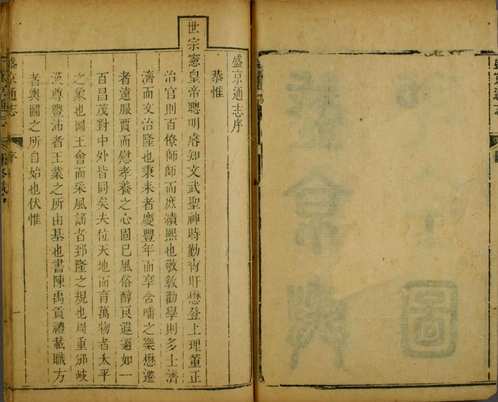 盛京通志序
恭惟
世宗憲皇帝聰明睿知文武聖神時勤宵旰懋登上理董正
治官則百僚師師而庶績熙也敬敦勸學則多士濟
濟而文治隆也秉耒者慶豐年而享含哺之樂懋遷
者遠服賈而慰孝養之心固已風俗醇良遐邇如一
百昌茂對中外皆同矣夫位天地而育萬物者太平
之業也圖王會而采風謠者郅隆之規也周重邠岐
漢尊豐沛者王業之所由基也書陳禹貢禮載職方
者輿圖之所自始也伏惟
盛京通志
序